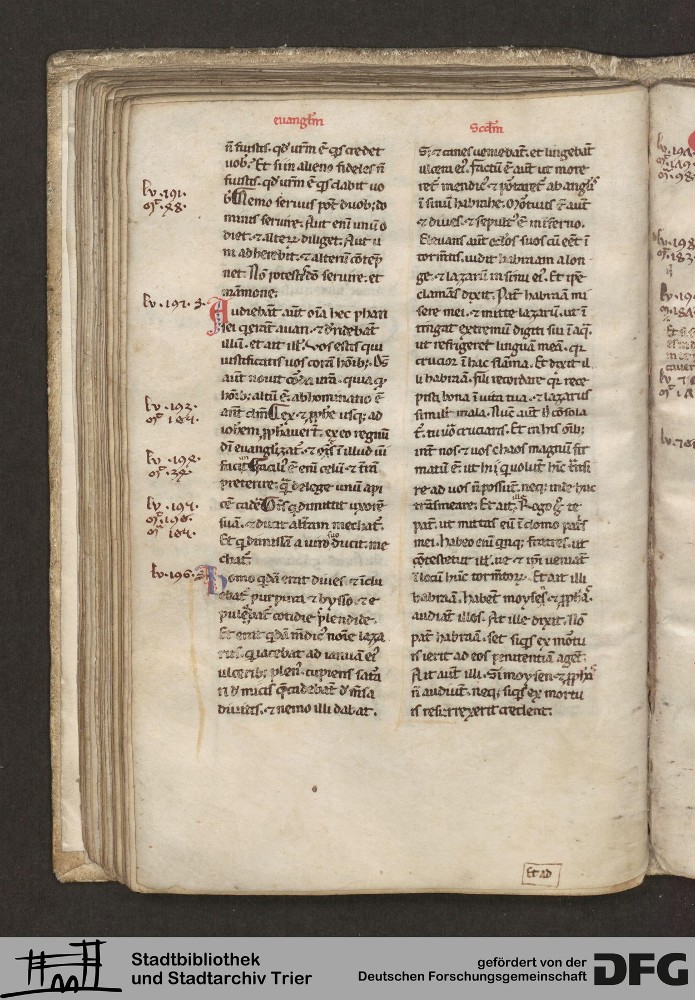 euangłm
ñ fuistis. qd' urm̄ ē q's credet
uob'. Et si in alieno fideles ñ
fuistis. qd' urm̄ ē q's dabit uo
b'. Nemo seruus pot̄ duob; do
minis seruire. Aut eni unū o
diet. ⁊ alterū diliget. Aut u
ni adherebit. ⁊ alterū cōtēp
net. Nō potestis dō seruire. et
māmone.
Audiebant aut̄ om̄ia hec phari
sei q' erant auari. ⁊ d'ridebāt
illū. et ait ill'. Vos estis qui
iustificatis uos corā hōib'. Ds̄
aut̄ nouit corda urā. quia q'
hōib; altū ē. abhominatio ē
ant̄ dm̄. Lex ⁊ pphe usq; ad
iohem pphauert̄. ex eo regnū
dī euangelizat̄. ⁊ om̄s ī illud uī
facit. Facili' ē eni celū ⁊ t̄rā
preterire. q̄ de lege unū api
cē cad'e. Om̄s q' dimittit uxorē
suā. ⁊ ducit alterām mechat̄.
Et q' dimissā a uiro suo ducit. me
chat̄.
Homo qdā erat diues. ⁊ īdu
ebat̄ purpura ⁊ bysso. ⁊ e
pulabat̄ cotidie splendide.
Et erat qdā mēdic' noīe laza
rus. q' iacebat ad ianuam ei'
ulcerib; plen'. cupiens satu
ri d' micis q̄ cadebāt d' m̄sa
diuitis. ⁊ nemo illi dabat.
scdm̄
S; ⁊ canes ueniebāt. et lingebāt
ulcera ei'. factū ē aut̄ ut more
ret̄ mendic' ⁊ portaret̄ ab angīs
ī sinū habrahe. Mortuus ē aut̄
⁊ diues. ⁊ sepult' ē in īferno.
Eleuans aut̄ oc'los suos cū eēt ī
torm̄tis. uidit habraam a lon
ge. ⁊ lazarū in sinu ei'. Et ipe
clamās dixit. Pat̄ habraā mi
sere mei. ⁊ mitte lazarū. ut ī
tingat extremū digiti sui ī aq̄.
ut refrig'et linguā meā. q'r
crucior ī hac flāma. Et dixit il
li habraā. fili recordare q'r rece
pisti bona ī uita tua. ⁊ lazarus
similit̄ mala. Nūc aut̄ h' cōsola
t̄. tu uō cruciaris. Et ī his oīb;
int̄ nos ⁊ uos chaos magnū fir
matū ē. ut hi q' uolunt hīc trāsi
re ad uos ñ possint. neq; inde huc
trāsmeare. Et ait. Rogo g° te
pat̄. ut mittas eū ī domo pat's
mei. habeo eni q'nq; fratres. ut
cōtestetur ill'. ne ⁊ ipi ueniāt
ī locū hūc torm̄torū. Et ait illi
habraā. habent moysē. ⁊ pphās.
audiāt illos. At ille dixit. Nō
pat̄ habraā. set siq's ex mortu
is ierit ad eos penitentiā agēt.
Ait aut̄ illi. Si moysen ⁊ pphās
ñ audiūt. neq; siq's ex mortu
is resurrexerit credent.
lv . 191.
mᵗ . 48.
lv . 192.
lv . 193.
mᵗ 104.
lv . 194.
lv . 195.
lv . 196.
Et ad
Stadtbibliothek
und Stadtarchiv Trier
gefördert von der
Deutschen Forschungsgemeinschaft
DFG